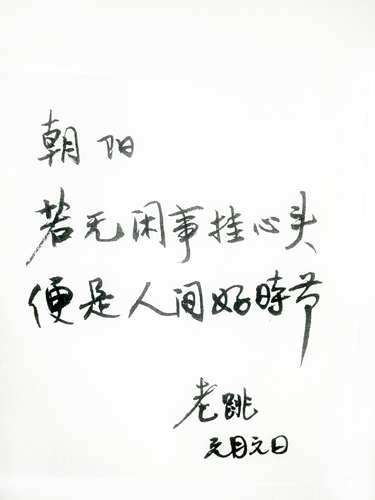 朝阳
若无闲事挂心头
便是人间好時节
老跳
元月元日